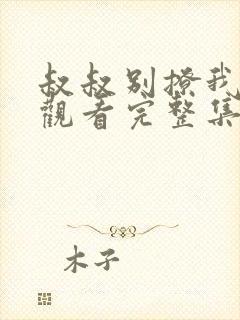 叔叔别撩我
觀看完整集
木子